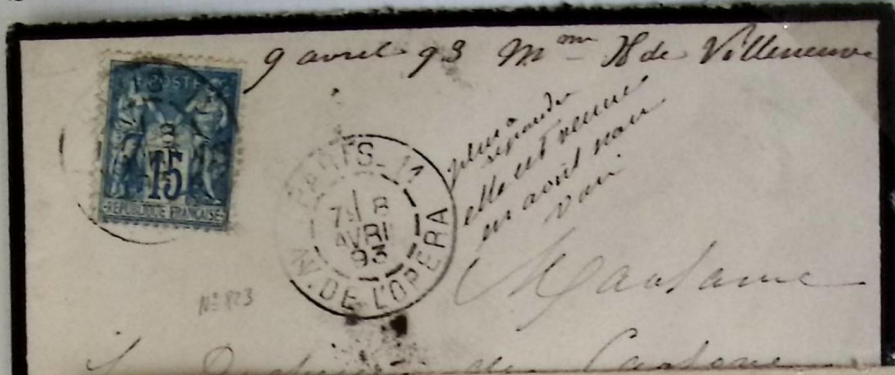 9 avril 93 Mme H de Villeneuve
POSTES
15
REPUBLIQUE FRANÇAISE
PARIS_11
7E 8
AVRIL
93
AV. DE L'OPERA
plus à
répondre
elle est venue
en avril
Madame
No 823
de